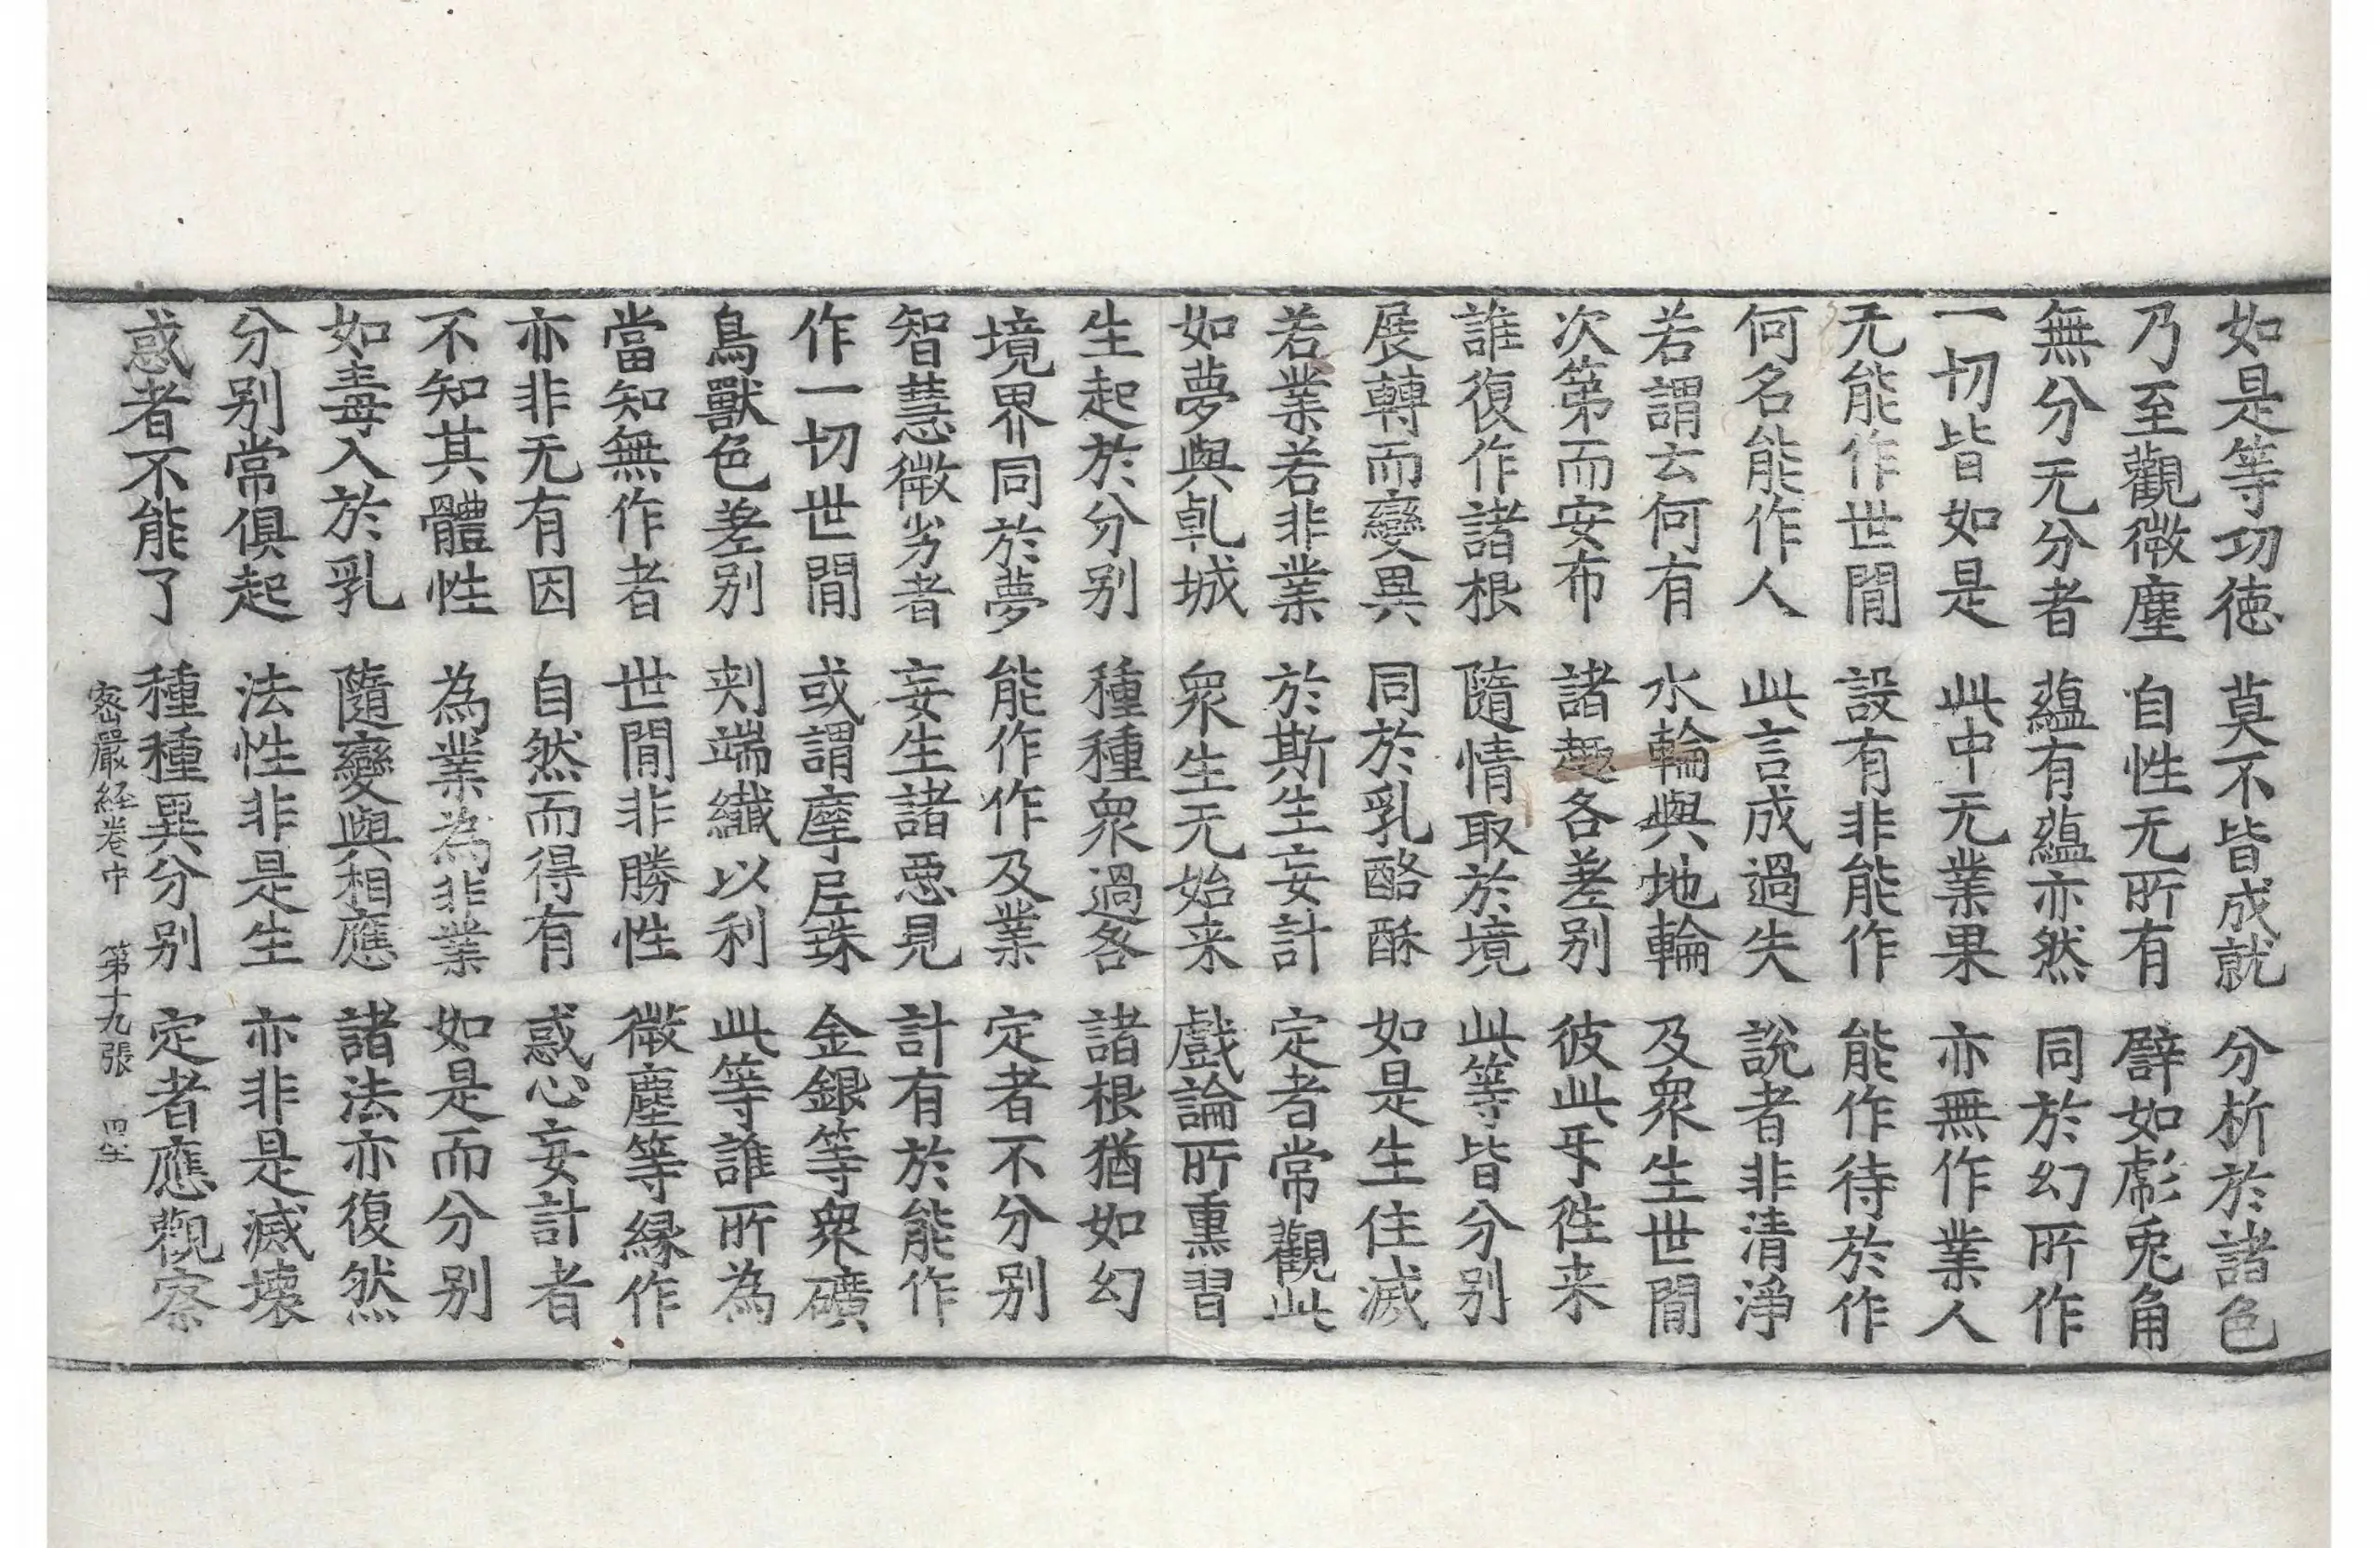 如是等功徳　莫不皆成就　分析於諸色
乃至觀微塵　自性无所有　譬如彪兎角
無分无分者　蘊有蘊亦然　同於幻所作
一切皆如是　此中无業果　亦無作業人
无能作世閒　設有非能作　能作待於作
何名能作人　此言成過失　說者非清淨
若謂去何有　水輪與地輪　及衆生世閒
次第而安布　諸趣各差别　彼此㸦徃来
誰復作諸根　隨情取於境　此等皆分别
展轉而變異　同於乳酪酥　如是生住滅
若業若非業　於斯生妄計　定者常觀此
如夢與乹城　衆生无始来　戲論所熏習
生起於分别　種種衆過咎　諸根猶如幻
境界同於夢　能作作及業　定者不分别
智慧微劣者　妄生諸惡見　計有於能作
作一切世閒　或謂摩尼珠　金銀等衆礦
鳥獸色差别　刾端纖以利　此等誰所為
當知無作者　世閒非勝性　微塵等縁作
亦非无有因　自然而得有　惑心妄計者
不知其體性　為業為非業　如是而分别
如毒入於乳　隨變與相應　諸法亦復然
分别常俱起　法性非是生　亦非是滅壊
惑者不能了　種種異分别　定者應觀察
密嚴経卷中　第十九張